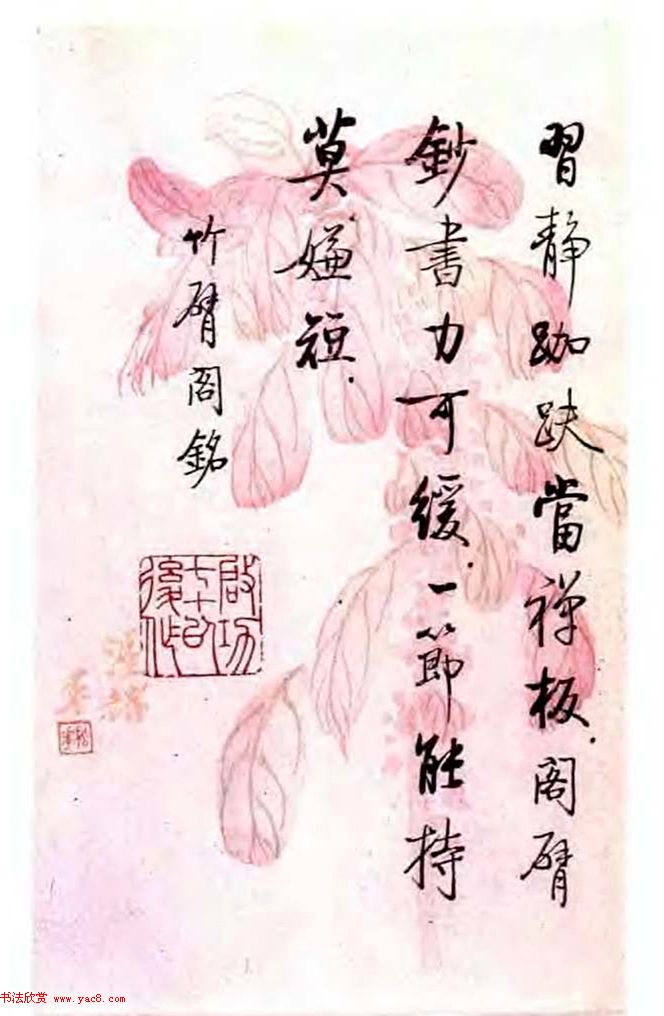 習靜跏趺當禪板.閣臂
鈔書力可緩.一節能持
莫嫌短.
竹臂閣銘
啟功
七十以
後作
书法欣赏 www.yac8.com